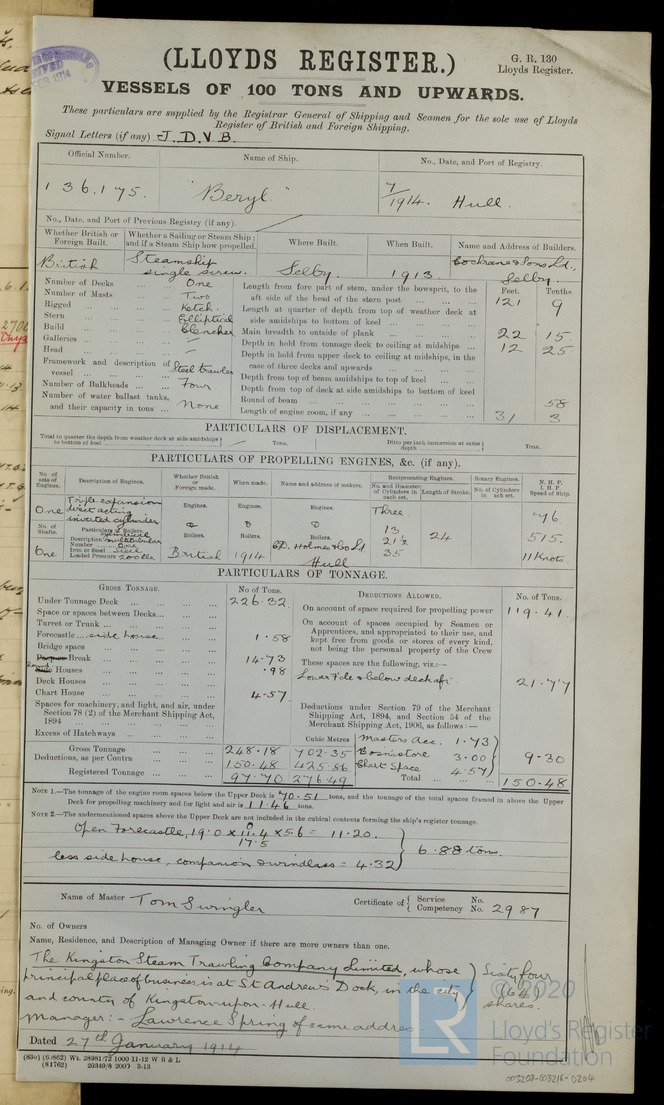 (LLOYDS REGISTER.)
G. R. 130
Lloyds Register.
VESSELS OF 100 TONS AND UPWARDS.
These particulars are supplied by the Registrar General of Shipping and Seamen for the sole use of Lloyds
Register of British and Foreign Shipping.
Signal Letters (if any) J. D. V. B.
Official Number. Name of Ship. No., Date, and Port of Registry.
136,175. "Beryl" 7/1914. Hull.
No., Date, and Port of Previous Registry (if any).
Whether British or Foreign Built. Whether a Sailing or Steam Ship; and if a Steam Ship how propelled. Where Built. When Built. Name and Address of Builders.
British Steamship single screw. Selby. 1913. Cochrane & Sons Ld., Selby.
Number of Decks ... One
Number of Masts ... Two
Rigged ... Ketch.
Stern ... Elliptical
Build ... Clencher
Galleries ... –
Head ... –
Framework and description of vessel ... Steel trawler
Number of Bulkheads ... Four
Number of water ballast tanks, and their capacity in tons ... None
Feet. Tenths
Length from fore part of stem, under the bowsprit, to the aft side of the head of the stern post ... 121 9
Length at quarter of depth from top of weather deck at side amidships to bottom of keel ...
Main breadth to outside of plank ... 22 15
Depth in hold from tonnage deck to ceiling at midships ... 12 25
Depth in hold from upper deck to ceiling at midships, in the case of three decks and upwards ...
Depth from top of beam amidships to top of keel ...
Depth from top of deck at side amidships to bottom of keel
Round of beam ... 58
Length of engine room, if any ... 31 3
PARTICULARS OF DISPLACEMENT.
Total to quarter the depth from weather deck at side amidships to bottom of keel ... Tons. Ditto per inch immersion at same depth ... Tons.
PARTICULARS OF PROPELLING ENGINES, &c. (if any).
No. of sets of Engines. Description of Engines. Whether British or Foreign made. When made. Name and address of makers. Reciprocating Engines. Rotary Engines. N. H. P. I. H. P. Speed of Ship.
No. and Diameter of Cylinders in each set. Length of Stroke. No. of Cylinders in each set.
One Triple expansion direct acting inverted cylinder Engines. Engines. Engines. Three 76
No. of Shafts. Particulars of Boilers. Boilers. Boilers. Boilers. 13 21½ 35 24 515.
Description multitubular
Number One
Iron or Steel Steel
Loaded Pressure 200 lbs
One British 1914 Holmes & Co Ld. Hull 11 Knots.
PARTICULARS OF TONNAGE.
GROSS TONNAGE. No of Tons. DEDUCTIONS ALLOWED. No. of Tons.
Under Tonnage Deck ... 226.32
Space or spaces between Decks ...
Turret or Trunk ...
Forecastle ... side house ... 1.58
Bridge space ...
Break ... 14.73
Houses ... .98
Deck Houses ...
Chart House ... 4.57
Spaces for machinery, and light, and air, under Section 78 (2) of the Merchant Shipping Act, 1894 ...
Excess of Hatchways ...
Cubic Metres
Gross Tonnage ... 248.18 702.35
Deductions, as per Contra ... 150.48 425.86
Registered Tonnage ... 97.70 276.49
On account of space required for propelling power 119.41
On account of spaces occupied by Seamen or Apprentices, and appropriated to their use, and kept free from goods or stores of every kind, not being the personal property of the Crew
These spaces are the following, viz.:—
Lower F'cle & below deck aft. 21.77
Deductions under Section 79 of the Merchant Shipping Act, 1894, and Section 54 of the Merchant Shipping Act, 1906, as follows:—
Masters acc. 1.73
Bosn's store 3.00
Chart Space 4.57
9.30
Total ... 150.48
NOTE 1.—The tonnage of the engine room spaces below the Upper Deck is 70.51 tons, and the tonnage of the total spaces framed in above the Upper
Deck for propelling machinery and for light and air is 11.46 tons.
NOTE 2.—The undermentioned spaces above the Upper Deck are not included in the cubical contents forming the ship's register tonnage.
Open Forecastle, 19.0 x 11.4 x 5.6 = 11.20.
17.5
6.88 tons.
less side house, companion & windlass = 4.32
Name of Master Tom Swingler Certificate of { Service No. Competency No. 2987
No. of Owners
Name, Residence, and Description of Managing Owner if there are more owners than one.
The Kingston Steam Trawling Company Limited, whose
principal place of business is at St Andrew's Dock, in the city
and county of Kingston-upon-Hull.
Sixty four (64) shares.
Manager:- Lawrence Spring of same address.
Dated 27th January 1914
(83o) (6)862) Wt. 28981/72 1000 11-12 W B & L
(81762) 20349/8 2000 3-13
© 2020
LR
Lloyd's Register
Foundation
003202-003216-0204